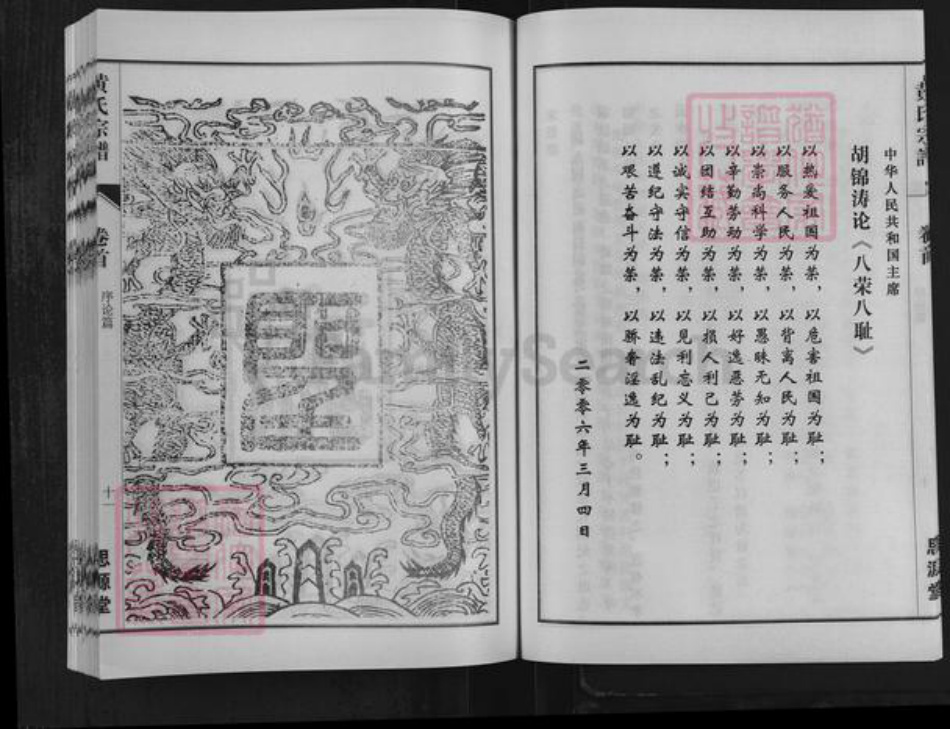 中华人民共和国主席
胡锦涛论《八荣八耻》
以热爱祖国为荣，以危害祖国为耻；
以服务人民为荣，以背离人民为耻；
以崇尚科学为荣，以愚昧无知为耻；
以辛勤劳动为荣，以好逸恶劳为耻；
以团结互助为荣，以损人利己为耻；
以诚实守信为荣，以见利忘义为耻；
以遵纪守法为荣，以违法乱纪为耻；
以艰苦奋斗为荣，以骄奢淫逸为耻。
二零零六年三月四日
黄氏宗谱
卷首
思源堂
黄氏宗谱
卷首
序论篇
十一
思源堂
FamilySearch